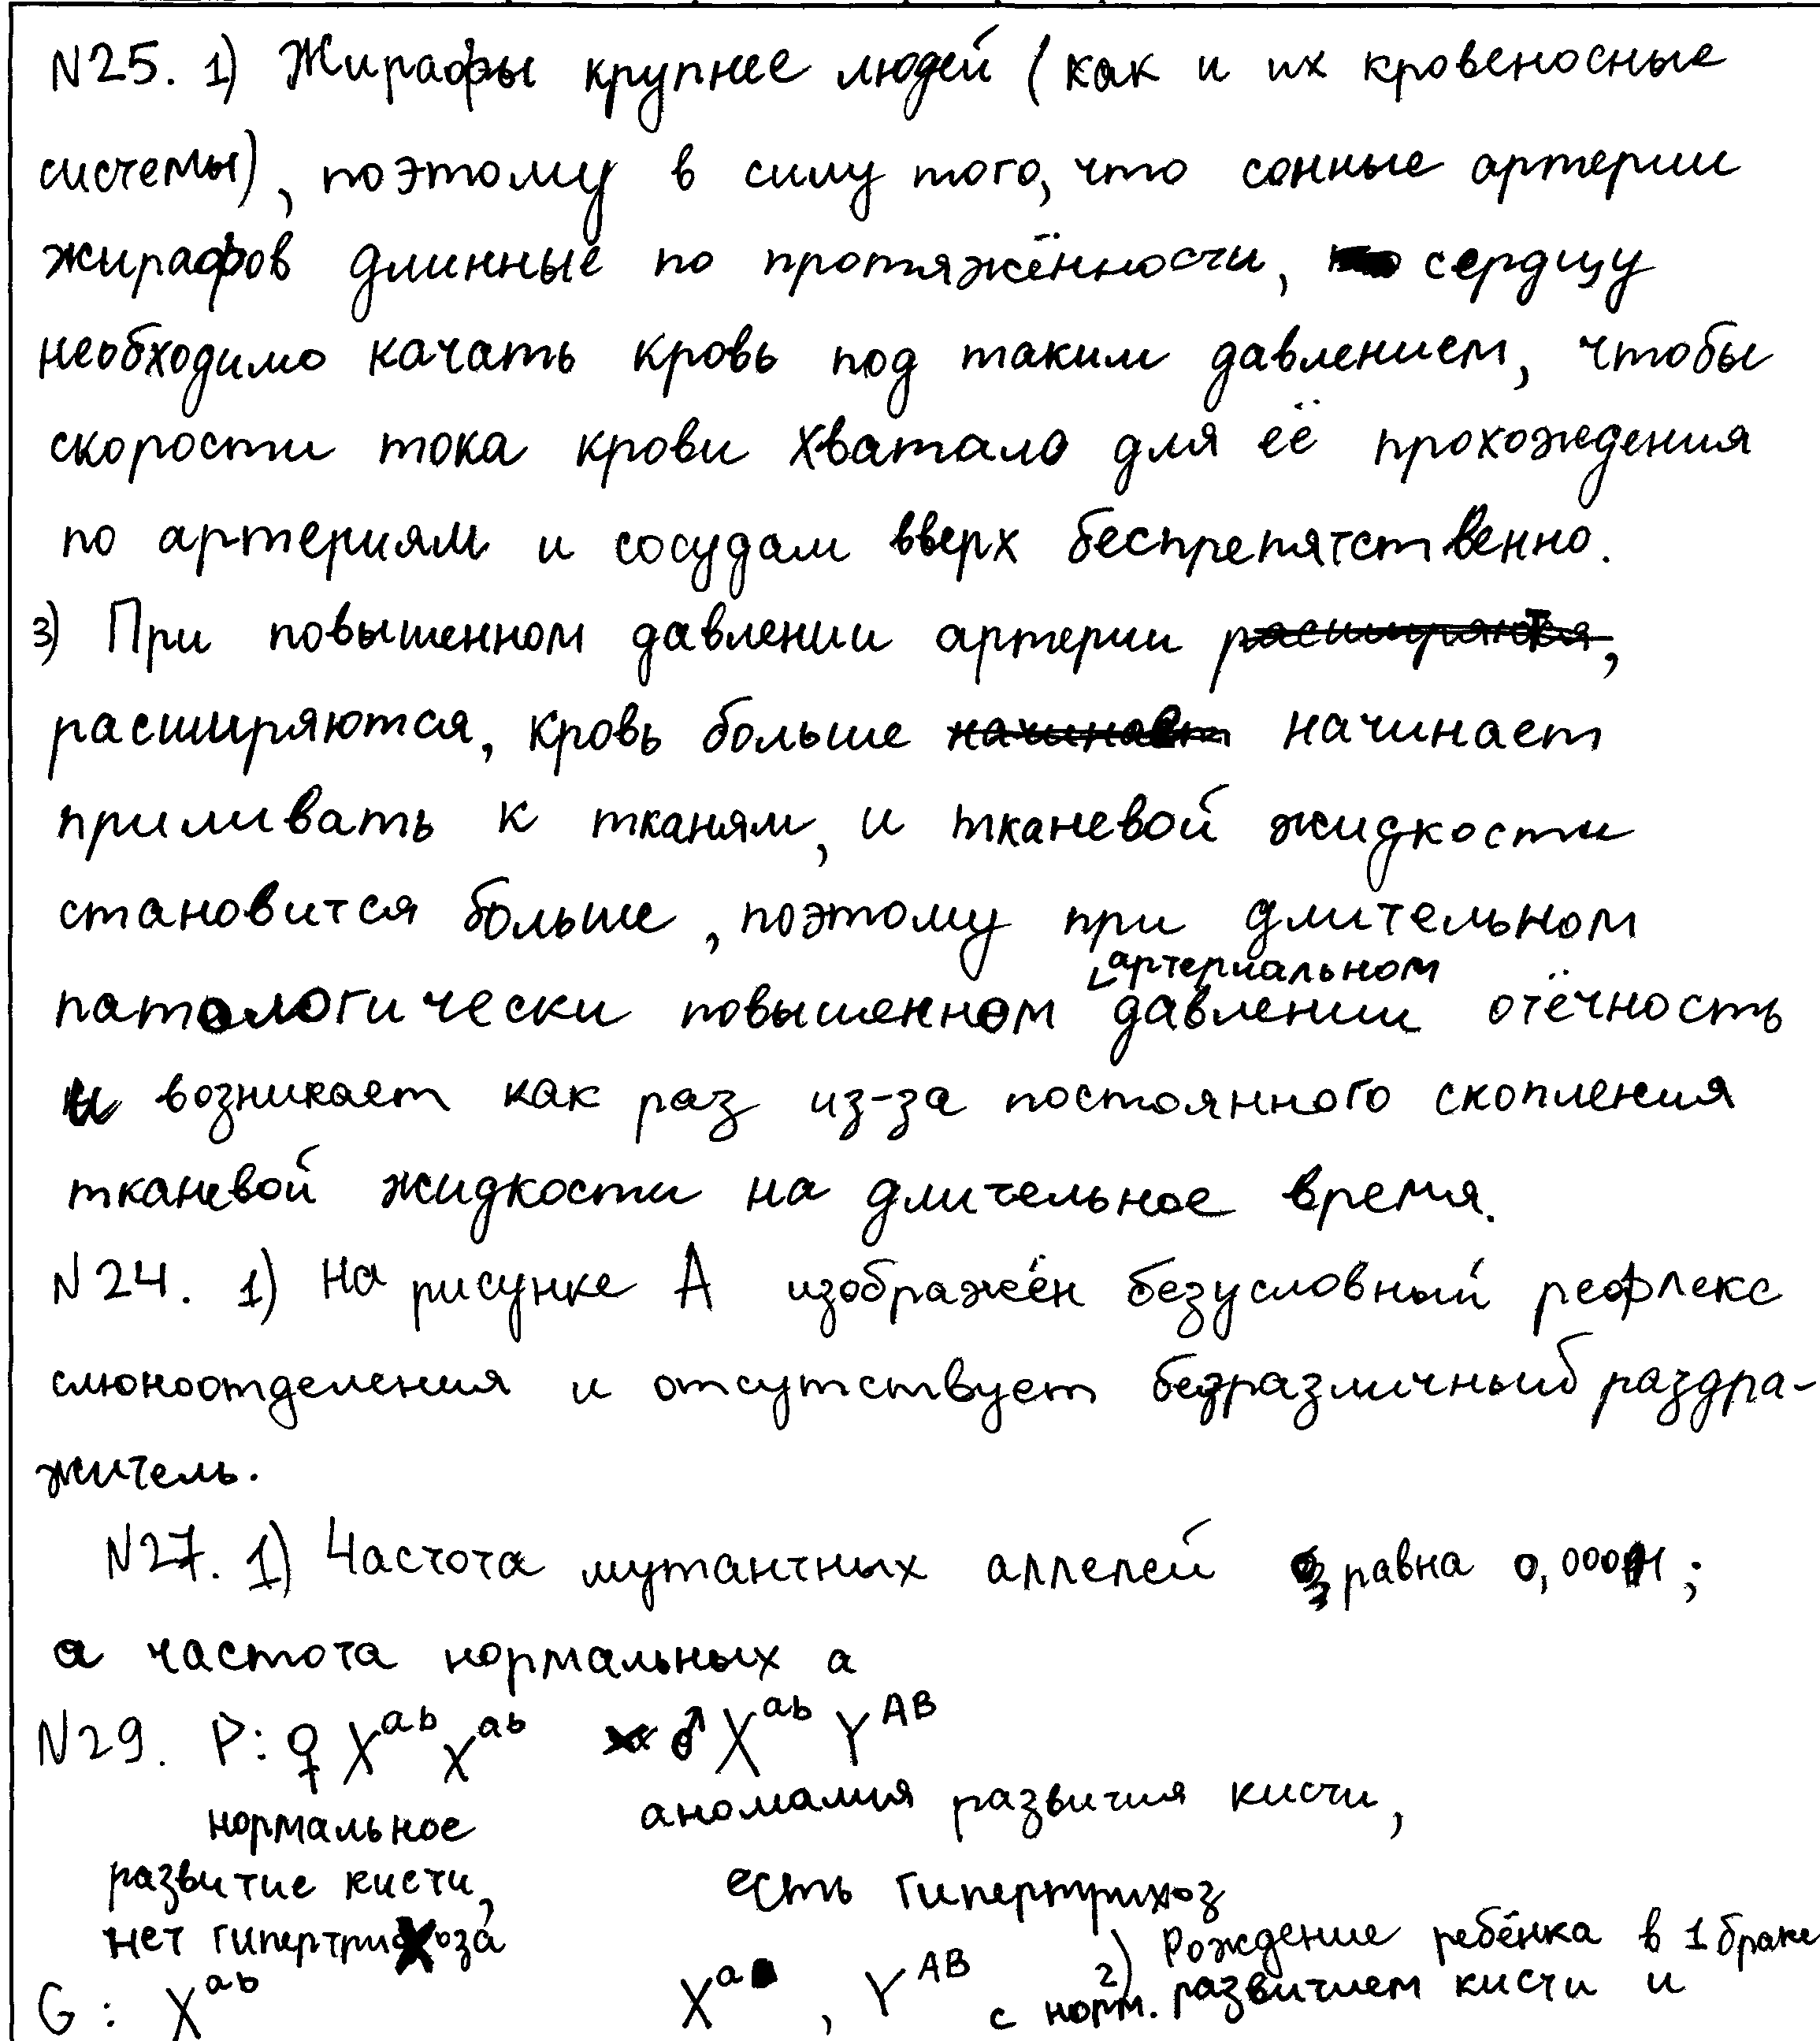 N25. 1) Жирафы крупнее людей (как и их кровеносные
системы), поэтому в силу того, что сонные артерии
жирафов длинные по протяжённости, сердцу
необходимо качать кровь под таким давлением, чтобы
скорости тока крови хватало для её прохождения
по артериям и сосудам вверх беспрепятственно.
3) При повышенном давлении артерии расширяются,
расширяются, кровь больше начинает начинает
приливать к тканям, и тканевой жидкости
становится больше, поэтому при длительном
артериальном
патологически повышенном давлении отёчность
и возникает как раз из-за постоянного скопления
тканевой жидкости на длительное время.
N24. 1) На рисунке А изображён безусловный рефлекс
слюноотделения и отсутствует безразличный раздра-
житель.
N27. 1) Частота мутантных аллелей равна ;
а частота нормальных а
N29. P: ♀ X^ab X^ab ♂ X^ab Y^AB
нормальное аномалия развития кисти,
развитие кисти, есть гипертрихоз
нет гипертрихоза
2) Рождение ребёнка в 1 браке
G: X^ab X^a , Y^AB с норм. развитием кисти и